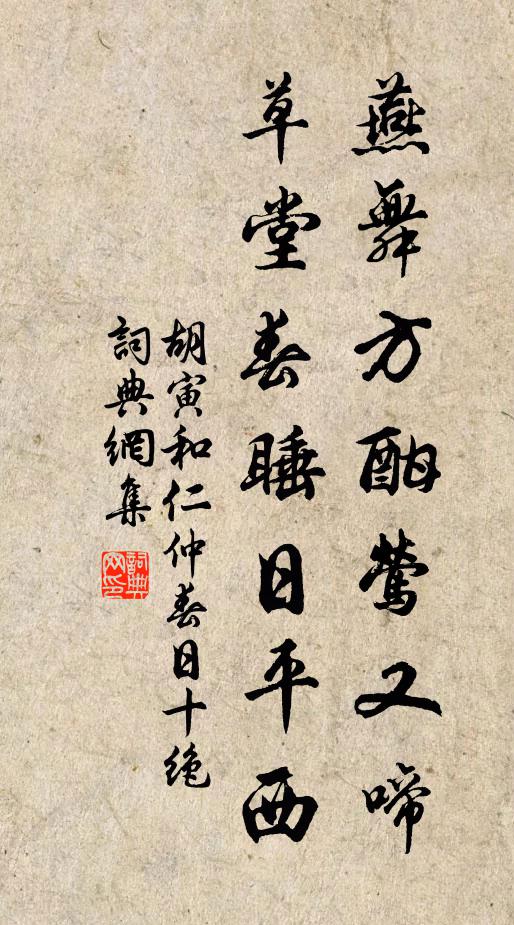 燕舞方酣莺又啼
草堂春睡日平西
胡寅和仁仲春日十绝
詞典網集
詞典网印